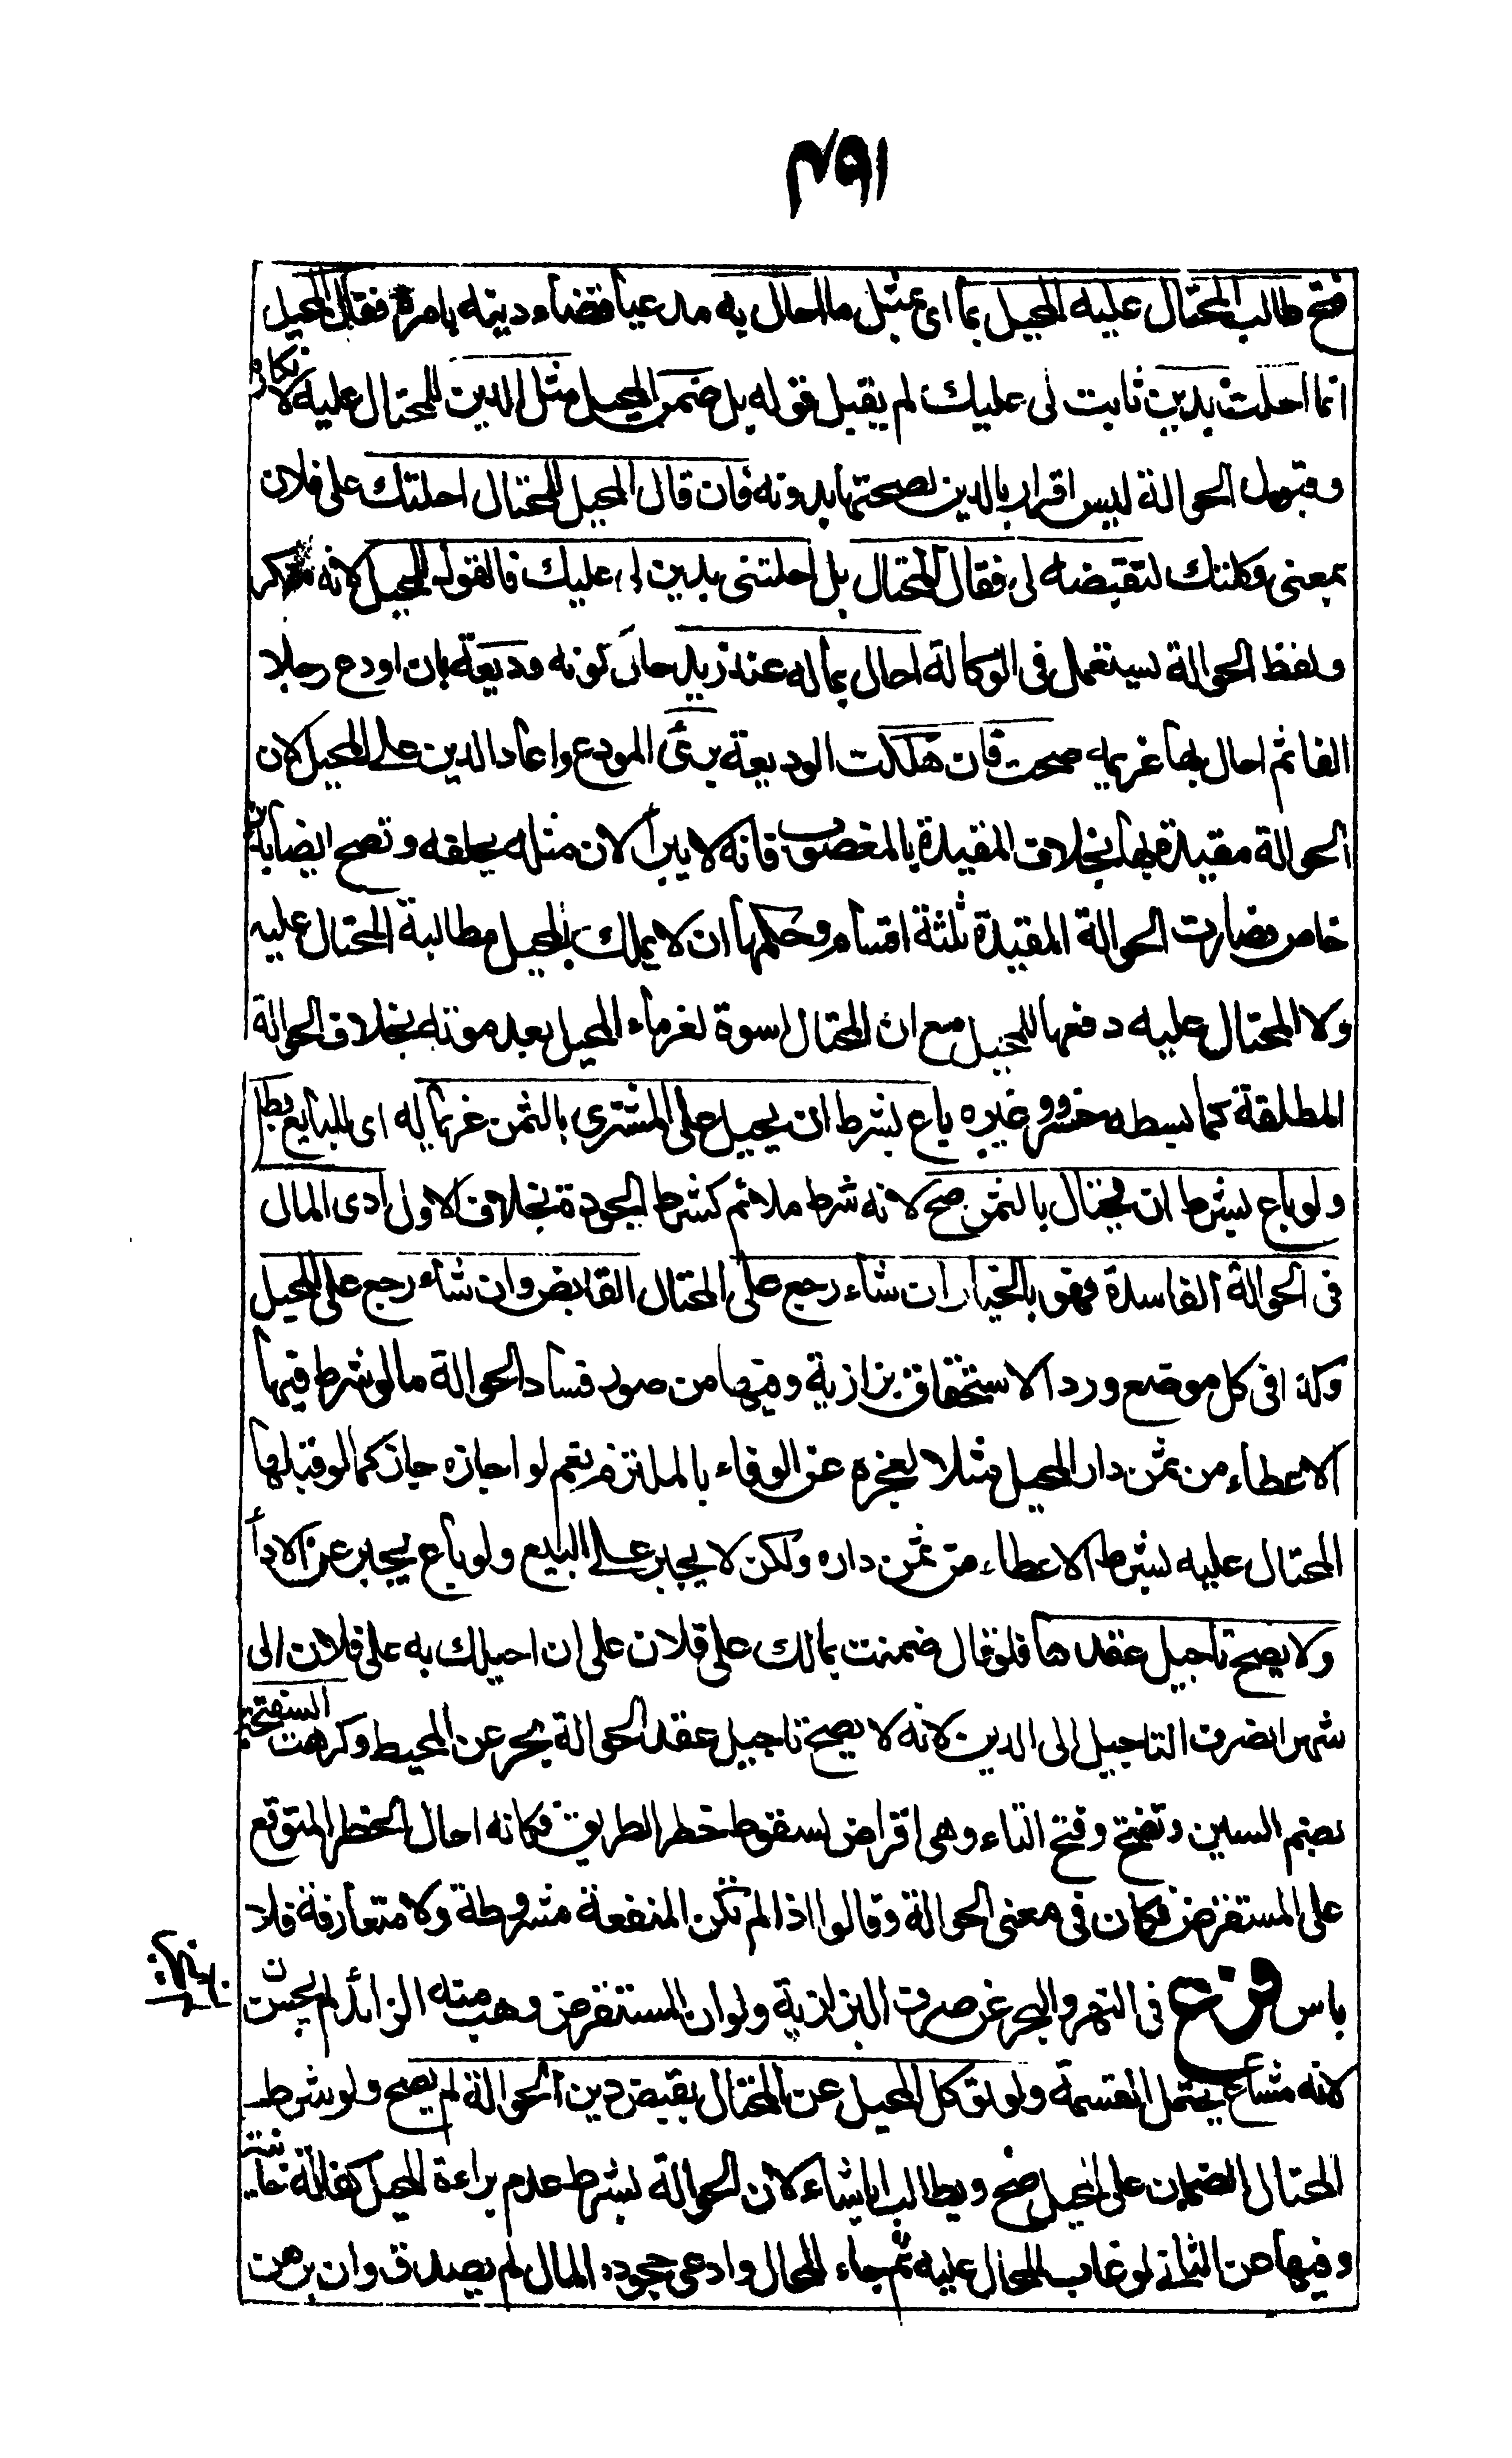 ٤٩١
فتح طالب المحتال عليه المحيل بما اى بمثل ما احال به مدعيا قضاء دينه بامره فقال المحيل
انما احلت بدين ثابت لى عليك لم يقبل قوله بل ضمن المحيل مثل الدين للمحتال عليه لانكاره
وقبول الحوالة ليس اقرارا بالدين لصحتها بدونه فان قال المحيل للمحتال احلتك على فلان
بمعنى وكلتك لتقبضه لى فقال المحتال بل احلتنى بدين لى عليك فالقول للمحيل لانه منكر
ولفظ الحوالة يستعمل فى الوكالة احال بماله عند زيد حال كونه وديعة بان اودع رجلا
الفا ثم احال بها غريمه صحت فان هلكت الوديعة برئ المودع وعاد الدين على المحيل لان
الحوالة مقيدة بها بخلاف المقيدة بالمغصوب فانه لا يبرأ لان مثله يخلفه وتصح ايضا بدين
خاص فصارت الحوالة المقيدة ثلثة اقسام وحكمها ان لا يملك المحيل مطالبة المحتال عليه
ولا المحتال عليه دفعها للمحيل مع ان المحتال اسوة لغرماء المحيل بعد موته بخلاف الحوالة
المطلقة كما بسطه خسرو وغيره باع بشرط ان يحيل على المشترى بالثمن غريما له اى للبايع بطل
ولو باع بشرط ان يحتال بالثمن صح لانه شرط ملائم كشرط الجودة بخلاف الاول ادى المال
فى الحوالة الفاسدة فهو بالخيار ان شاء رجع على المحتال القابض وان شاء رجع على المحيل
وكذا فى كل موضع ورد الاستحقاق بزازية وفيها من صور فساد الحوالة ما لو شرط فيها
الاعطاء من ثمن دار المحيل مثلا لعجزه عن الوفاء بالملتزم نعم لو اجازه جاز كما لو قبلها
المحتال عليه بشرط الاعطاء من ثمن داره ولكن لا يجبر على البيع ولو باع يجبر عن الاداء
ولا يصح تاجيل عقدها فلو قال ضمنت بمالك على فلان على ان احيلك به على فلان الى
شهر انصرف التاجيل الى الدين لانه لا يصح تاجيل عقد الحوالة بحر عن المحيط وكرهت السفتجة
بضم السين وتفتح وفتح التاء وهى اقراض لسقوط خطر الطريق فكانه احال الخطر المتوقع
على المستقرض فكان فى معنى الحوالة وقالوا اذا لم تكن المنفعة مشروطة ولا متعارفة فلا
باس فرع فى النهر والبحر عن صرف البزازية ولو ان المستقرض وهب منه الزائد لم يجز
لانه مشاع يحتمل القسمة ولو توكل المحيل عن المحتال بقبض دين الحوالة لم يصح ولو شرط
المحتال الضمان على المحيل صح ويطالب ايا شاء لان الحوالة بشرط عدم براءة المحيل كفالة خانية
وفيها عن الثانى لو غاب المحال عليه ثم جاء المحال وادعى جحوده المال لم يصدق وان برهن